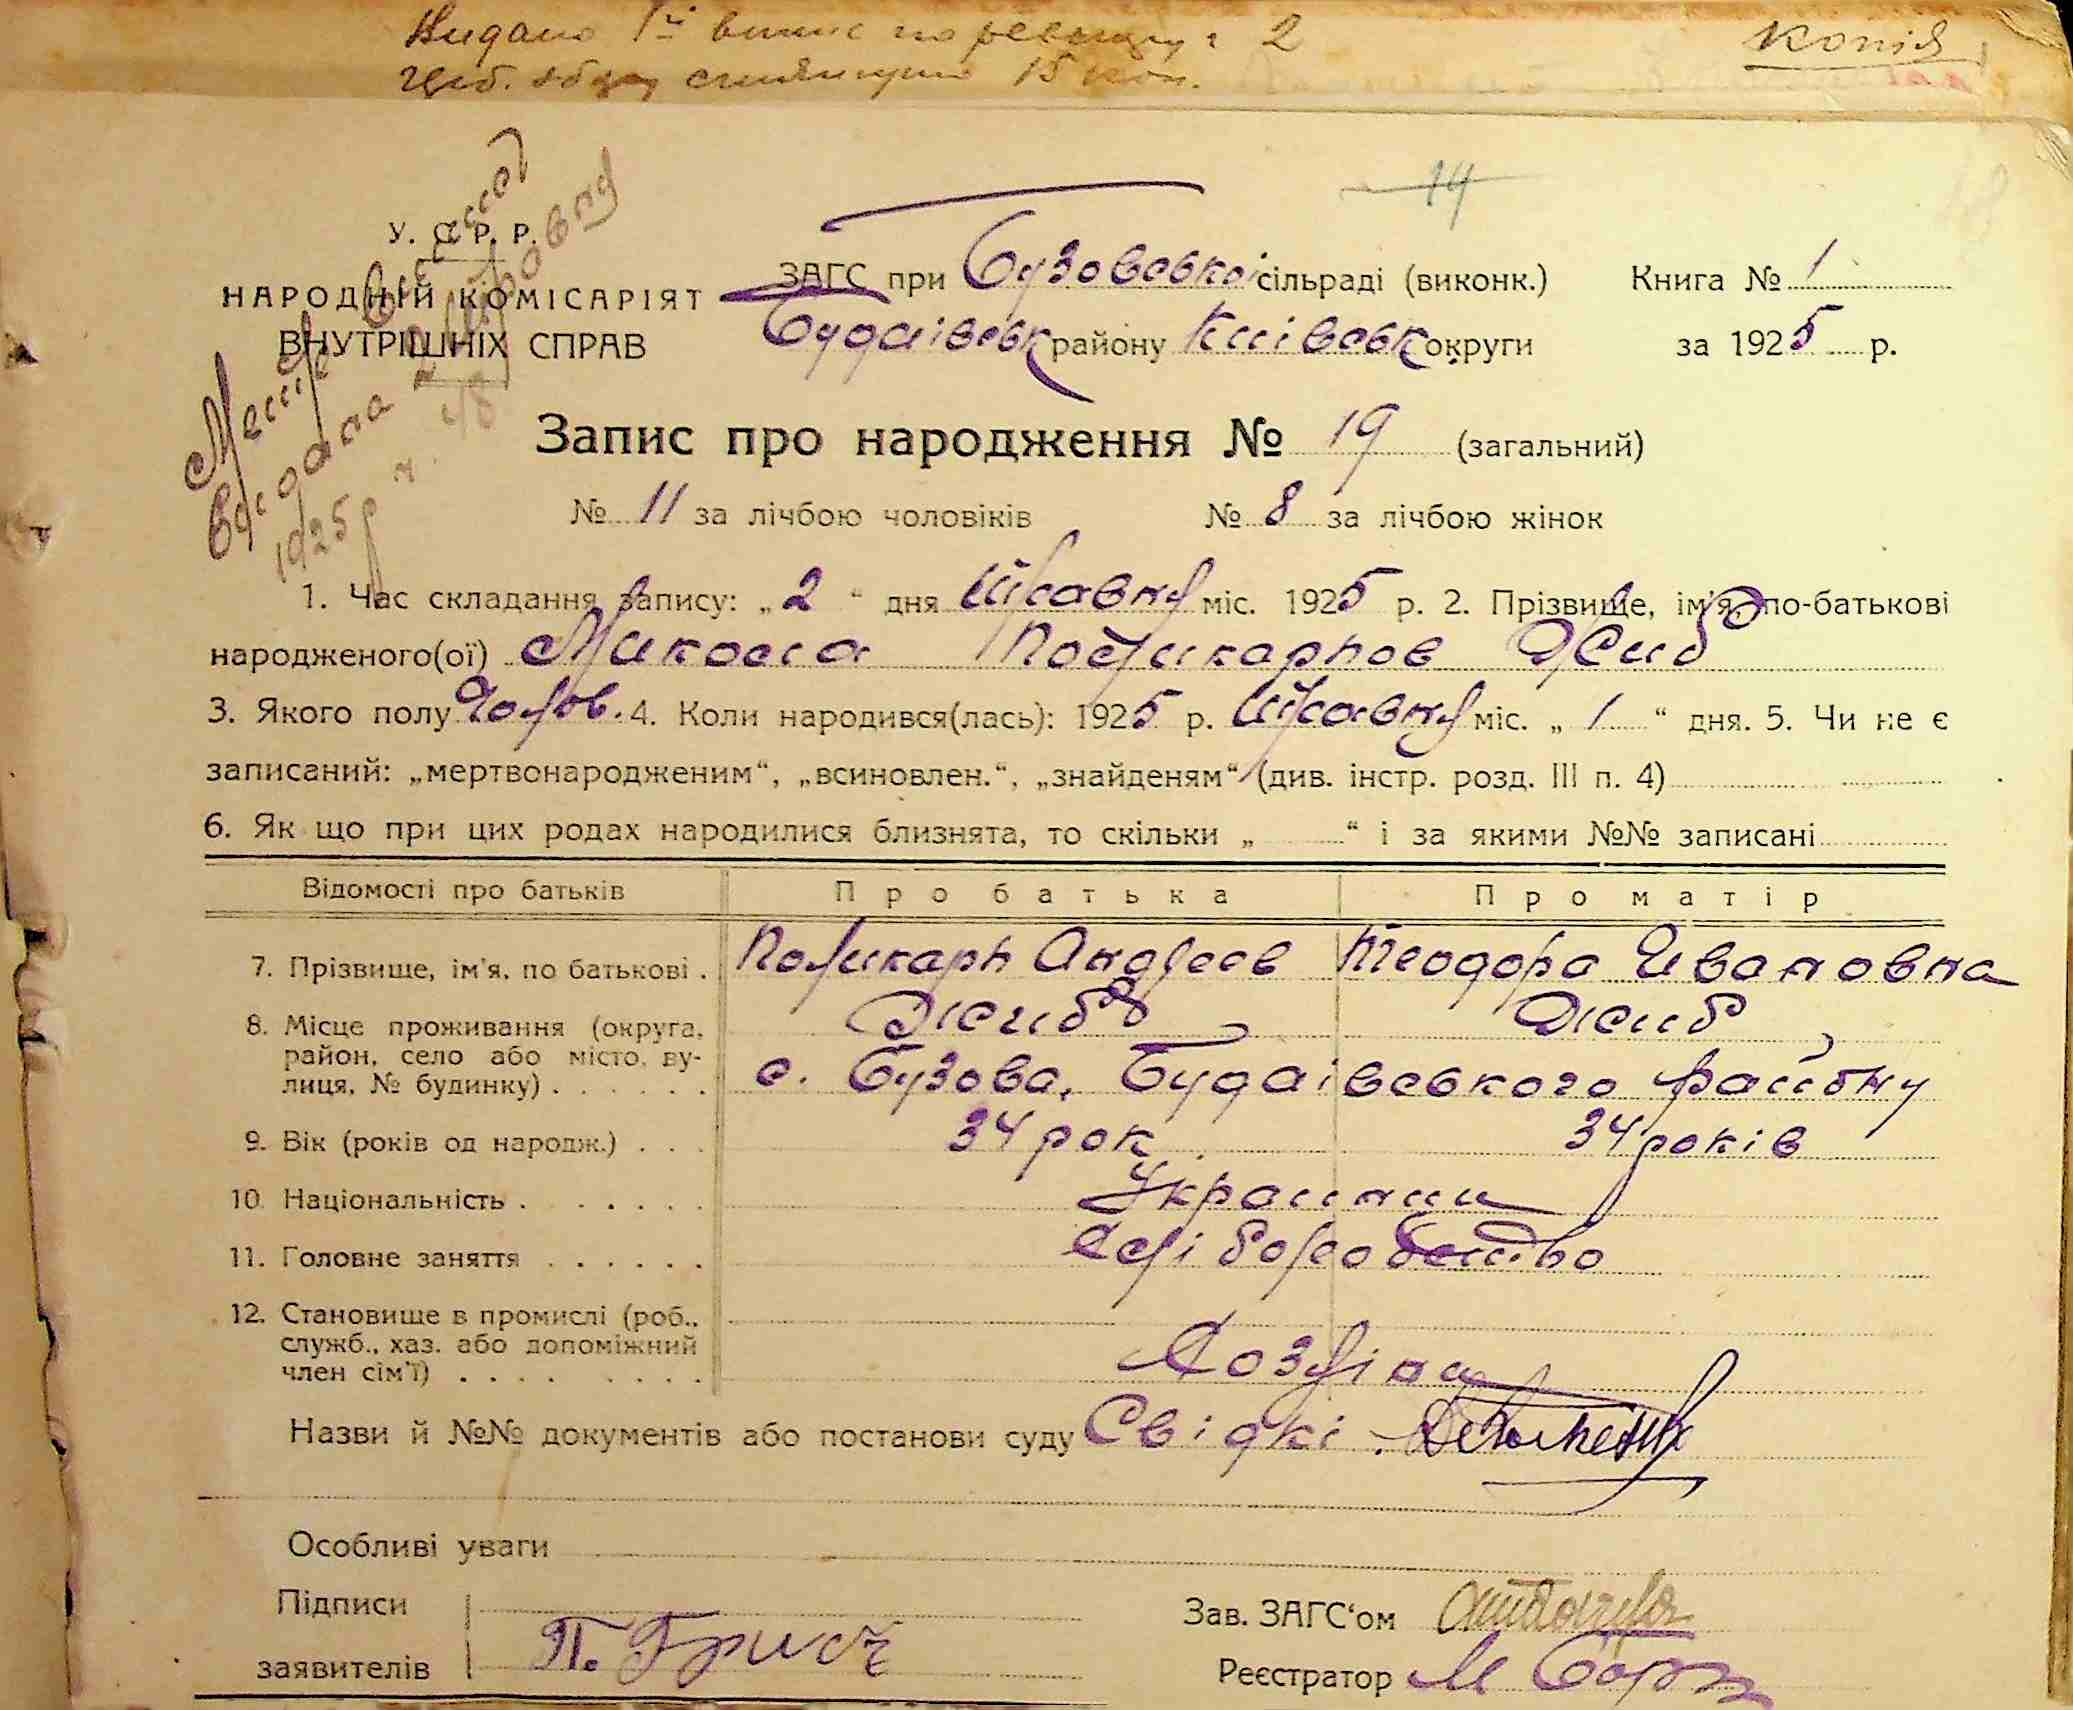 Видано 1й випис по реєстру 2
стягнуто 15 коп.
Копія
19
У. С. Р. Р.
НАРОДНІЙ КОМІСАРІЯТ
ВНУТРІШНІХ СПРАВ
видана
1925 р
ЗАГС при Бузовській сільраді (виконк.) Книга № 1
Будаівськ району Київськ округи за 1925 р.
Запис про народження № 19 (загальний)
№ 11 за лічбою чоловіків № 8 за лічбою жінок
1. Час складання запису: „2“ дня Травня міс. 1925 р. 2. Прізвище, ім'я, по-батькові
народженого(ої) Микола Полікарпов
3. Якого полу Чолов. 4. Коли народився(лась): 1925 р. Травня міс. „1“ дня. 5. Чи не є
записаний: „мертвонародженим“, „всиновлен.“, „знайденям“ (див. інстр. розд. III п. 4)
6. Як що при цих родах народилися близнята, то скільки „ “ і за якими №№ записані
Відомості про батьків Про батька Про матір
7. Прізвище, ім'я, по батькові . Поликарп Андреев Теодора Ивановна
8. Місце проживання (округа,
район, село або місто, ву-
лиця, № будинку) . . . . . . с. Бузова, Будаівського району
9. Вік (років од народж.) . . . 34 рок 34 років
10. Національність . . . . . . . Украинци
11. Головне заняття . . . . . . Хліборобство
12. Становище в промислі (роб.,
служб., хаз. або допоміжний
член сім'ї) . . . . . . . . Хозяіни
Назви й №№ документів або постанови суду Свідкі
Особливі уваги
Підписи
заявителів П. Грисч
Зав. ЗАГС'ом
Реєстратор М